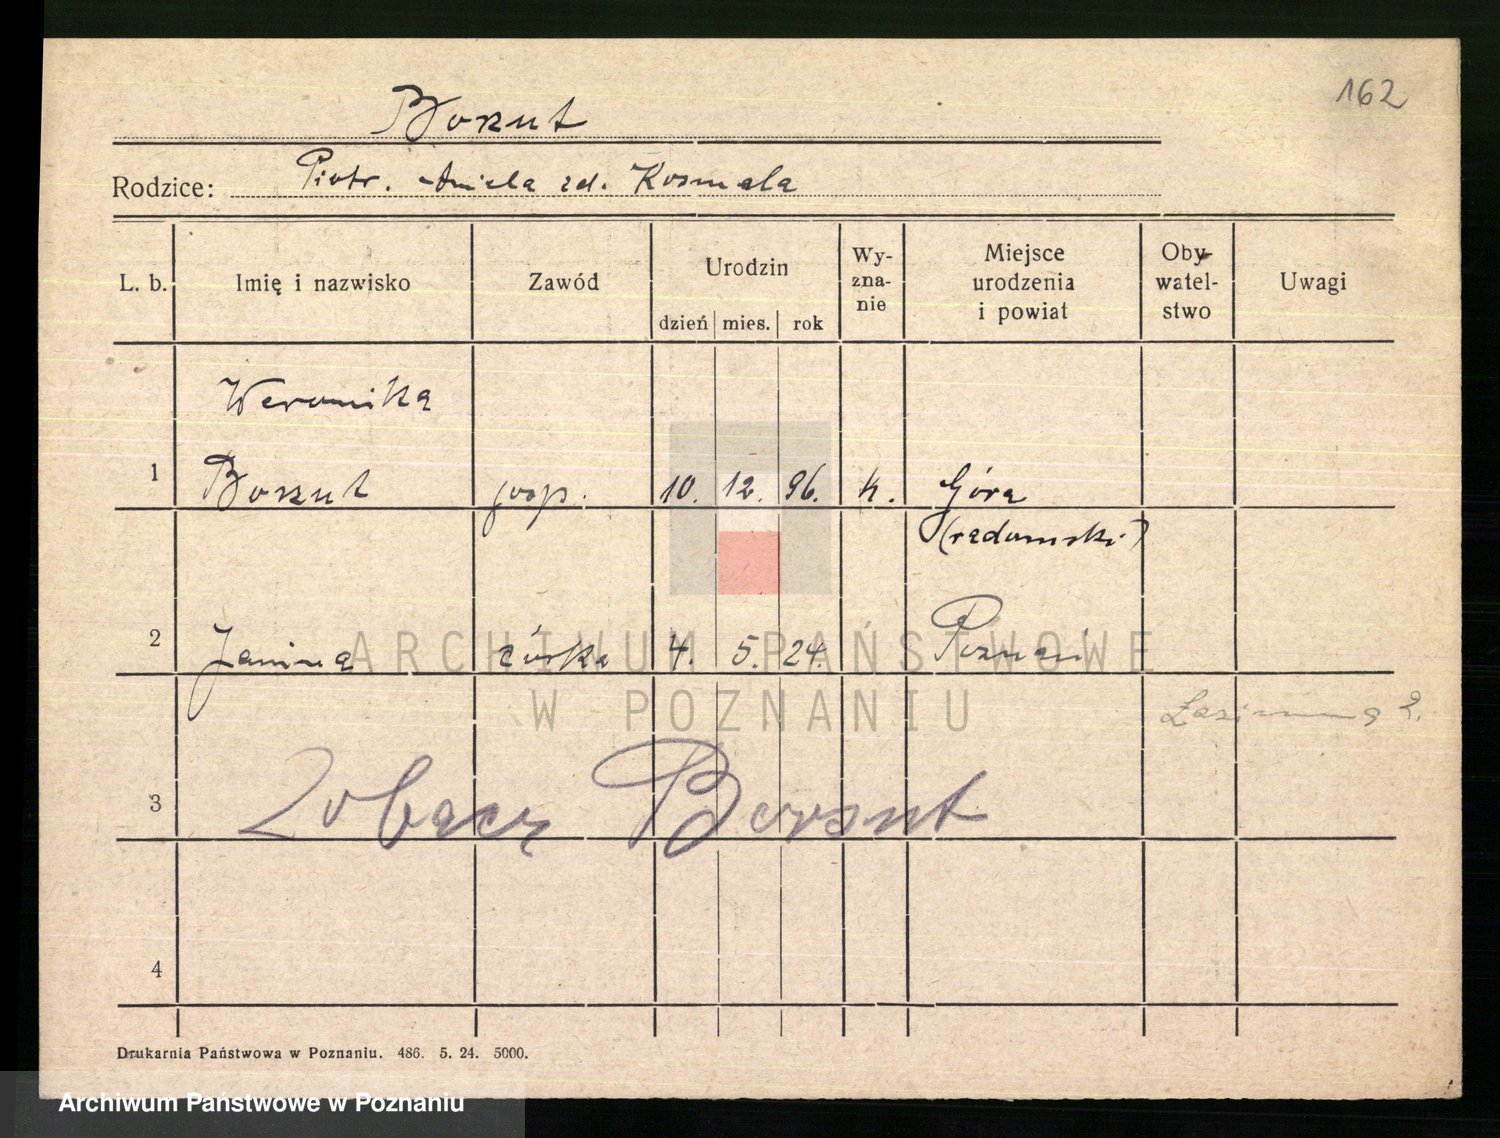 162
Borzut
Rodzice: Piotr. Aniela zd. Kosmala
L. b. Imię i nazwisko Zawód Urodzin dzień mies. rok Wy-zna-nie Miejsce urodzenia i powiat Oby-watel-stwo Uwagi
Weronika
1 Borzut gosp. 10. 12. 96. k. Góra
(radomski)
2 Janina córka 4. 5. 24. Poznań
ARCHIWUM PAŃSTWOWE
W POZNANIU
3 Zobacz Borsut
4
Drukarnia Państwowa w Poznaniu. 486. 5. 24. 5000.
Archiwum Państwowe w Poznaniu